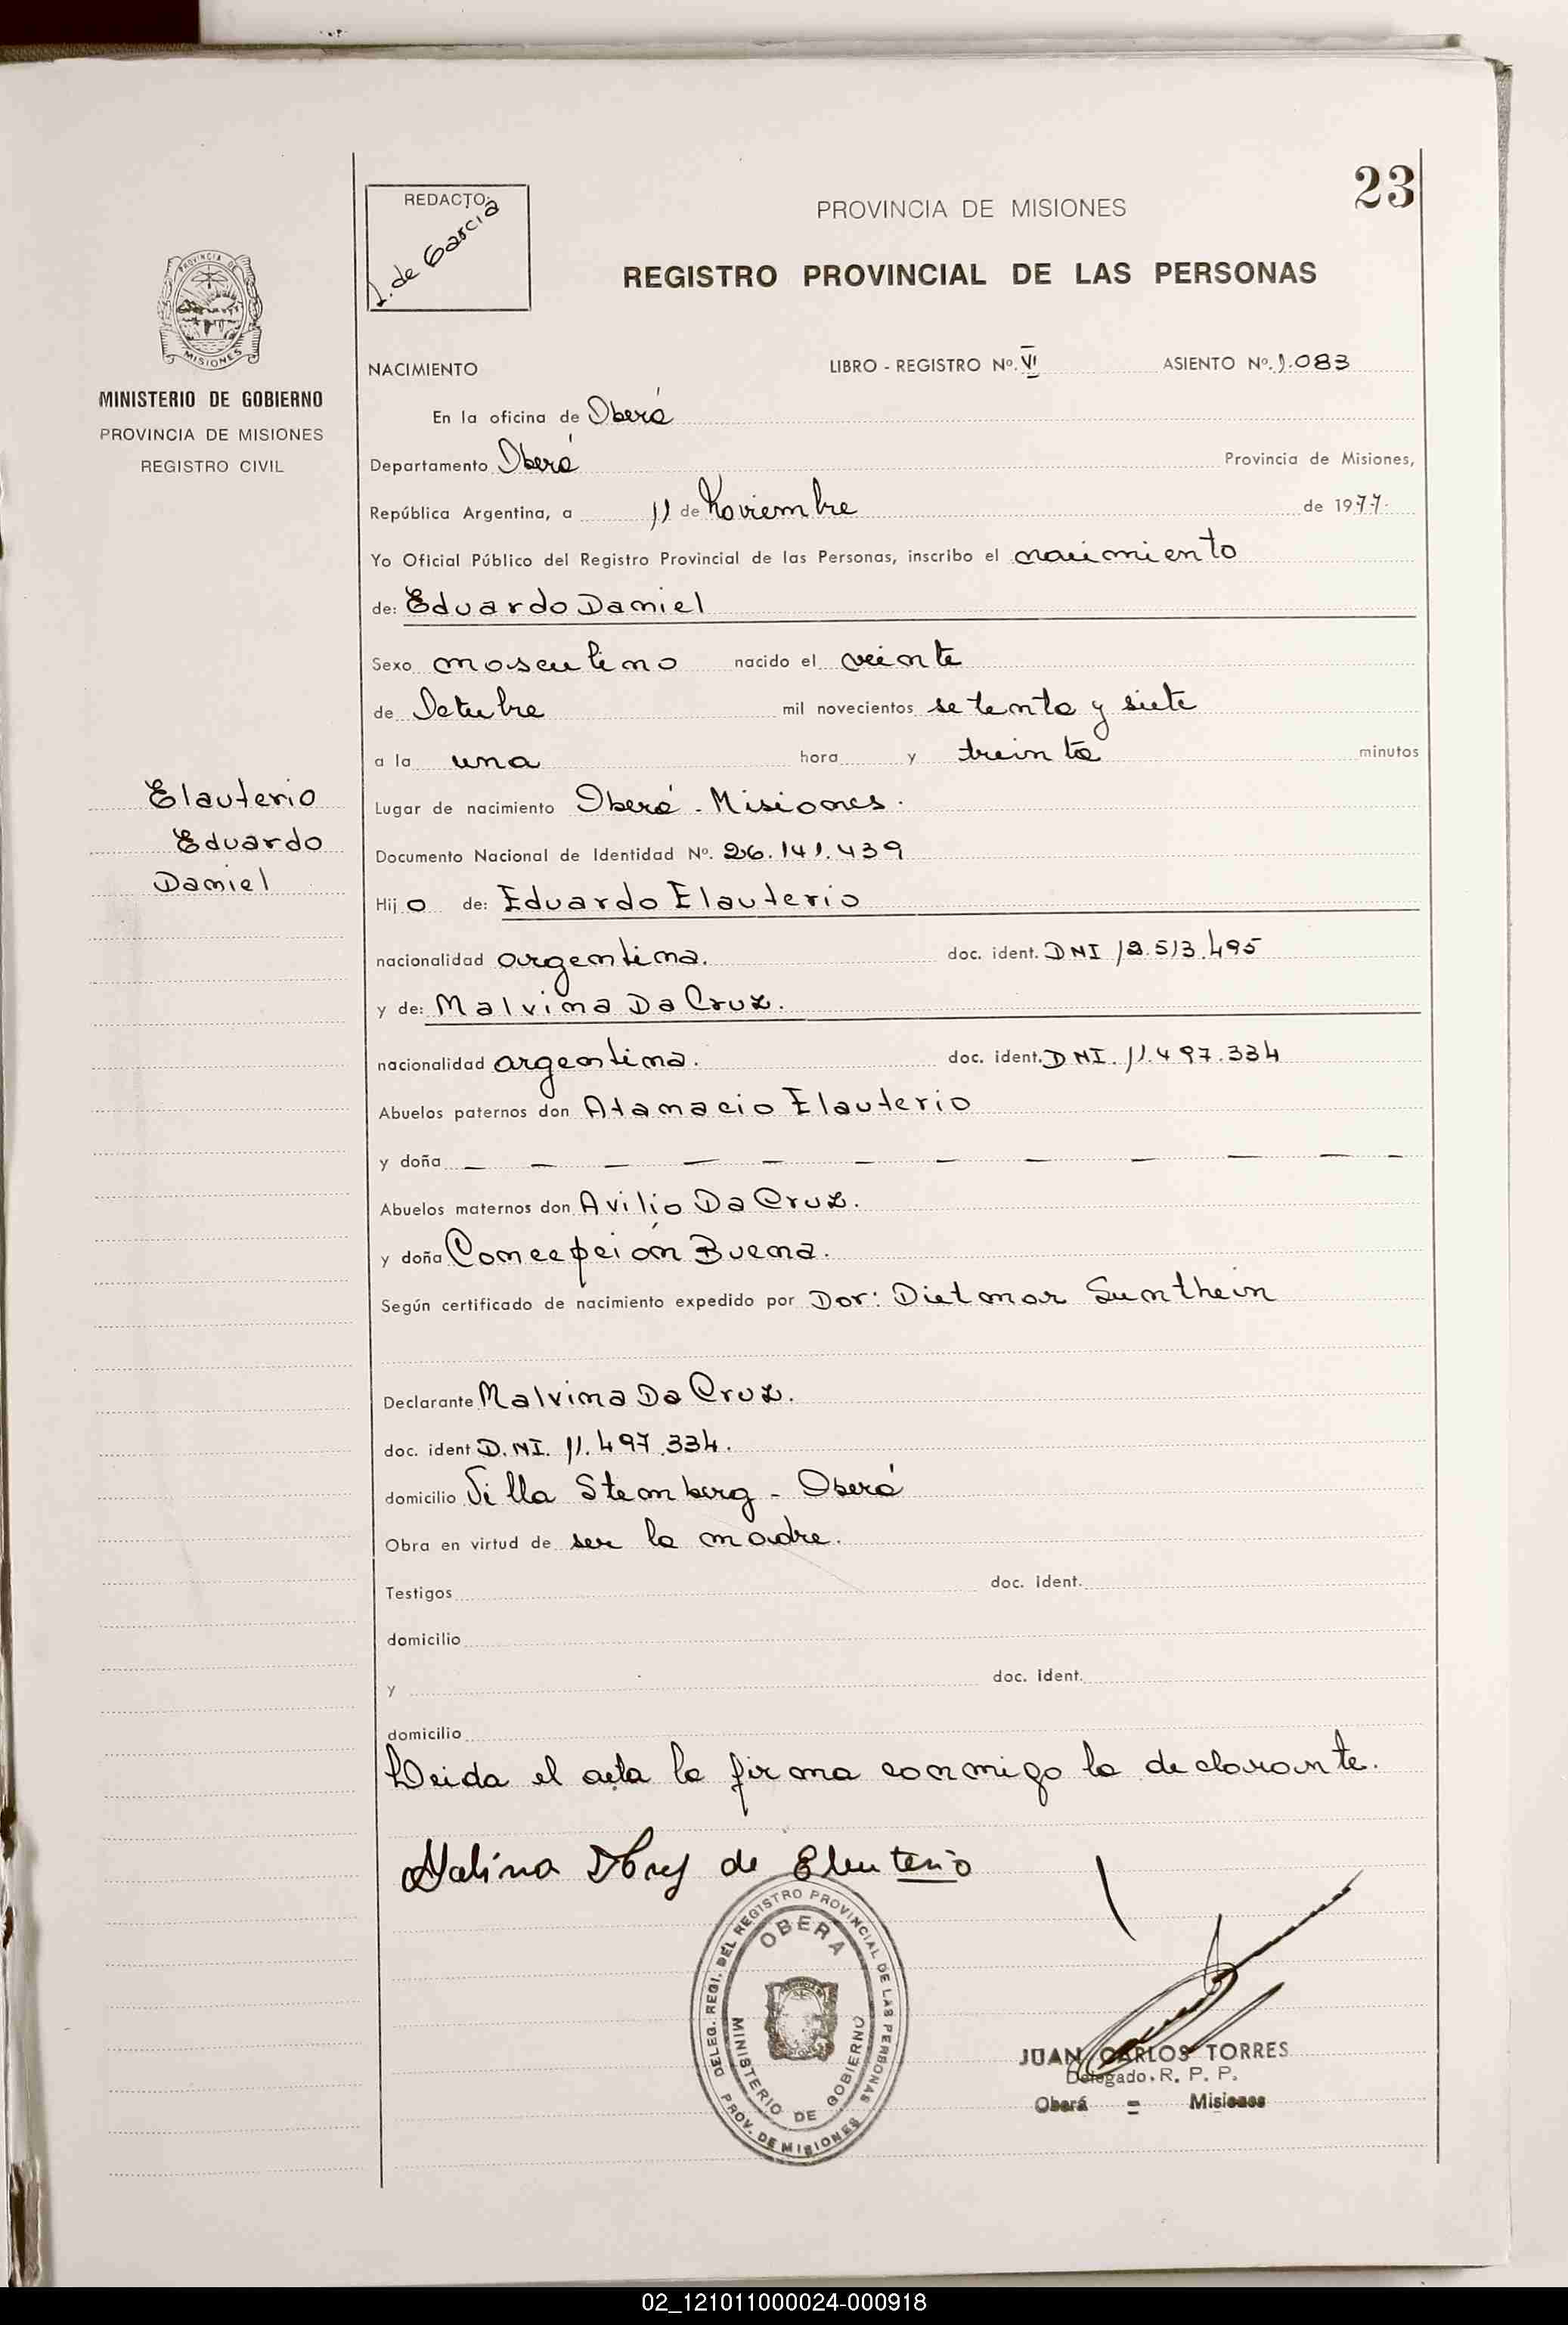 23
REDACTO:
I. de Garcia
PROVINCIA DE MISIONES
REGISTRO PROVINCIAL DE LAS PERSONAS
PROVINCIA DE
MISIONES
MINISTERIO DE GOBIERNO
PROVINCIA DE MISIONES
REGISTRO CIVIL
NACIMIENTO LIBRO - REGISTRO Nº. VI ASIENTO Nº. 1.083
En la oficina de Oberá
Departamento Oberá Provincia de Misiones,
República Argentina, a 11 de Noviembre de 1977.
Yo Oficial Público del Registro Provincial de las Personas, inscribo el nacimiento
de: Eduardo Daniel
Sexo masculino nacido el veinte
de Octubre mil novecientos setenta y siete
a la una hora y treinta minutos
Elauterio
Eduardo
Daniel
Lugar de nacimiento Oberá - Misiones.
Documento Nacional de Identidad Nº. 26.141.439
Hijo de: Eduardo Elauterio
nacionalidad argentina. doc. ident. DNI 12.513.495
y de: Malvina Da Cruz.
nacionalidad argentina. doc. ident. DNI. 11.497.334
Abuelos paternos don Atanacio Elauterio
y doña — — — — — — — — — — — —
Abuelos maternos don Avilio Da Cruz.
y doña Concepción Buena.
Según certificado de nacimiento expedido por Dor: Dietmar Sunthein
Declarante Malvina Da Cruz.
doc. ident D.NI. 11.497.334.
domicilio Villa Stemberg - Oberá
Obra en virtud de ser la madre.
Testigos doc. ident.
domicilio
y doc. ident.
domicilio
Leida el acta la firma conmigo la declarante.
de Eleuterio
DELEG. REGI. DEL REGISTRO PROVINCIAL DE LAS PERSONAS
OBERA
MINISTERIO DE GOBIERNO
PROV. DE MISIONES
JUAN CARLOS TORRES
Delegado. R. P. P.
Oberá = Misiones
02_121011000024-000918